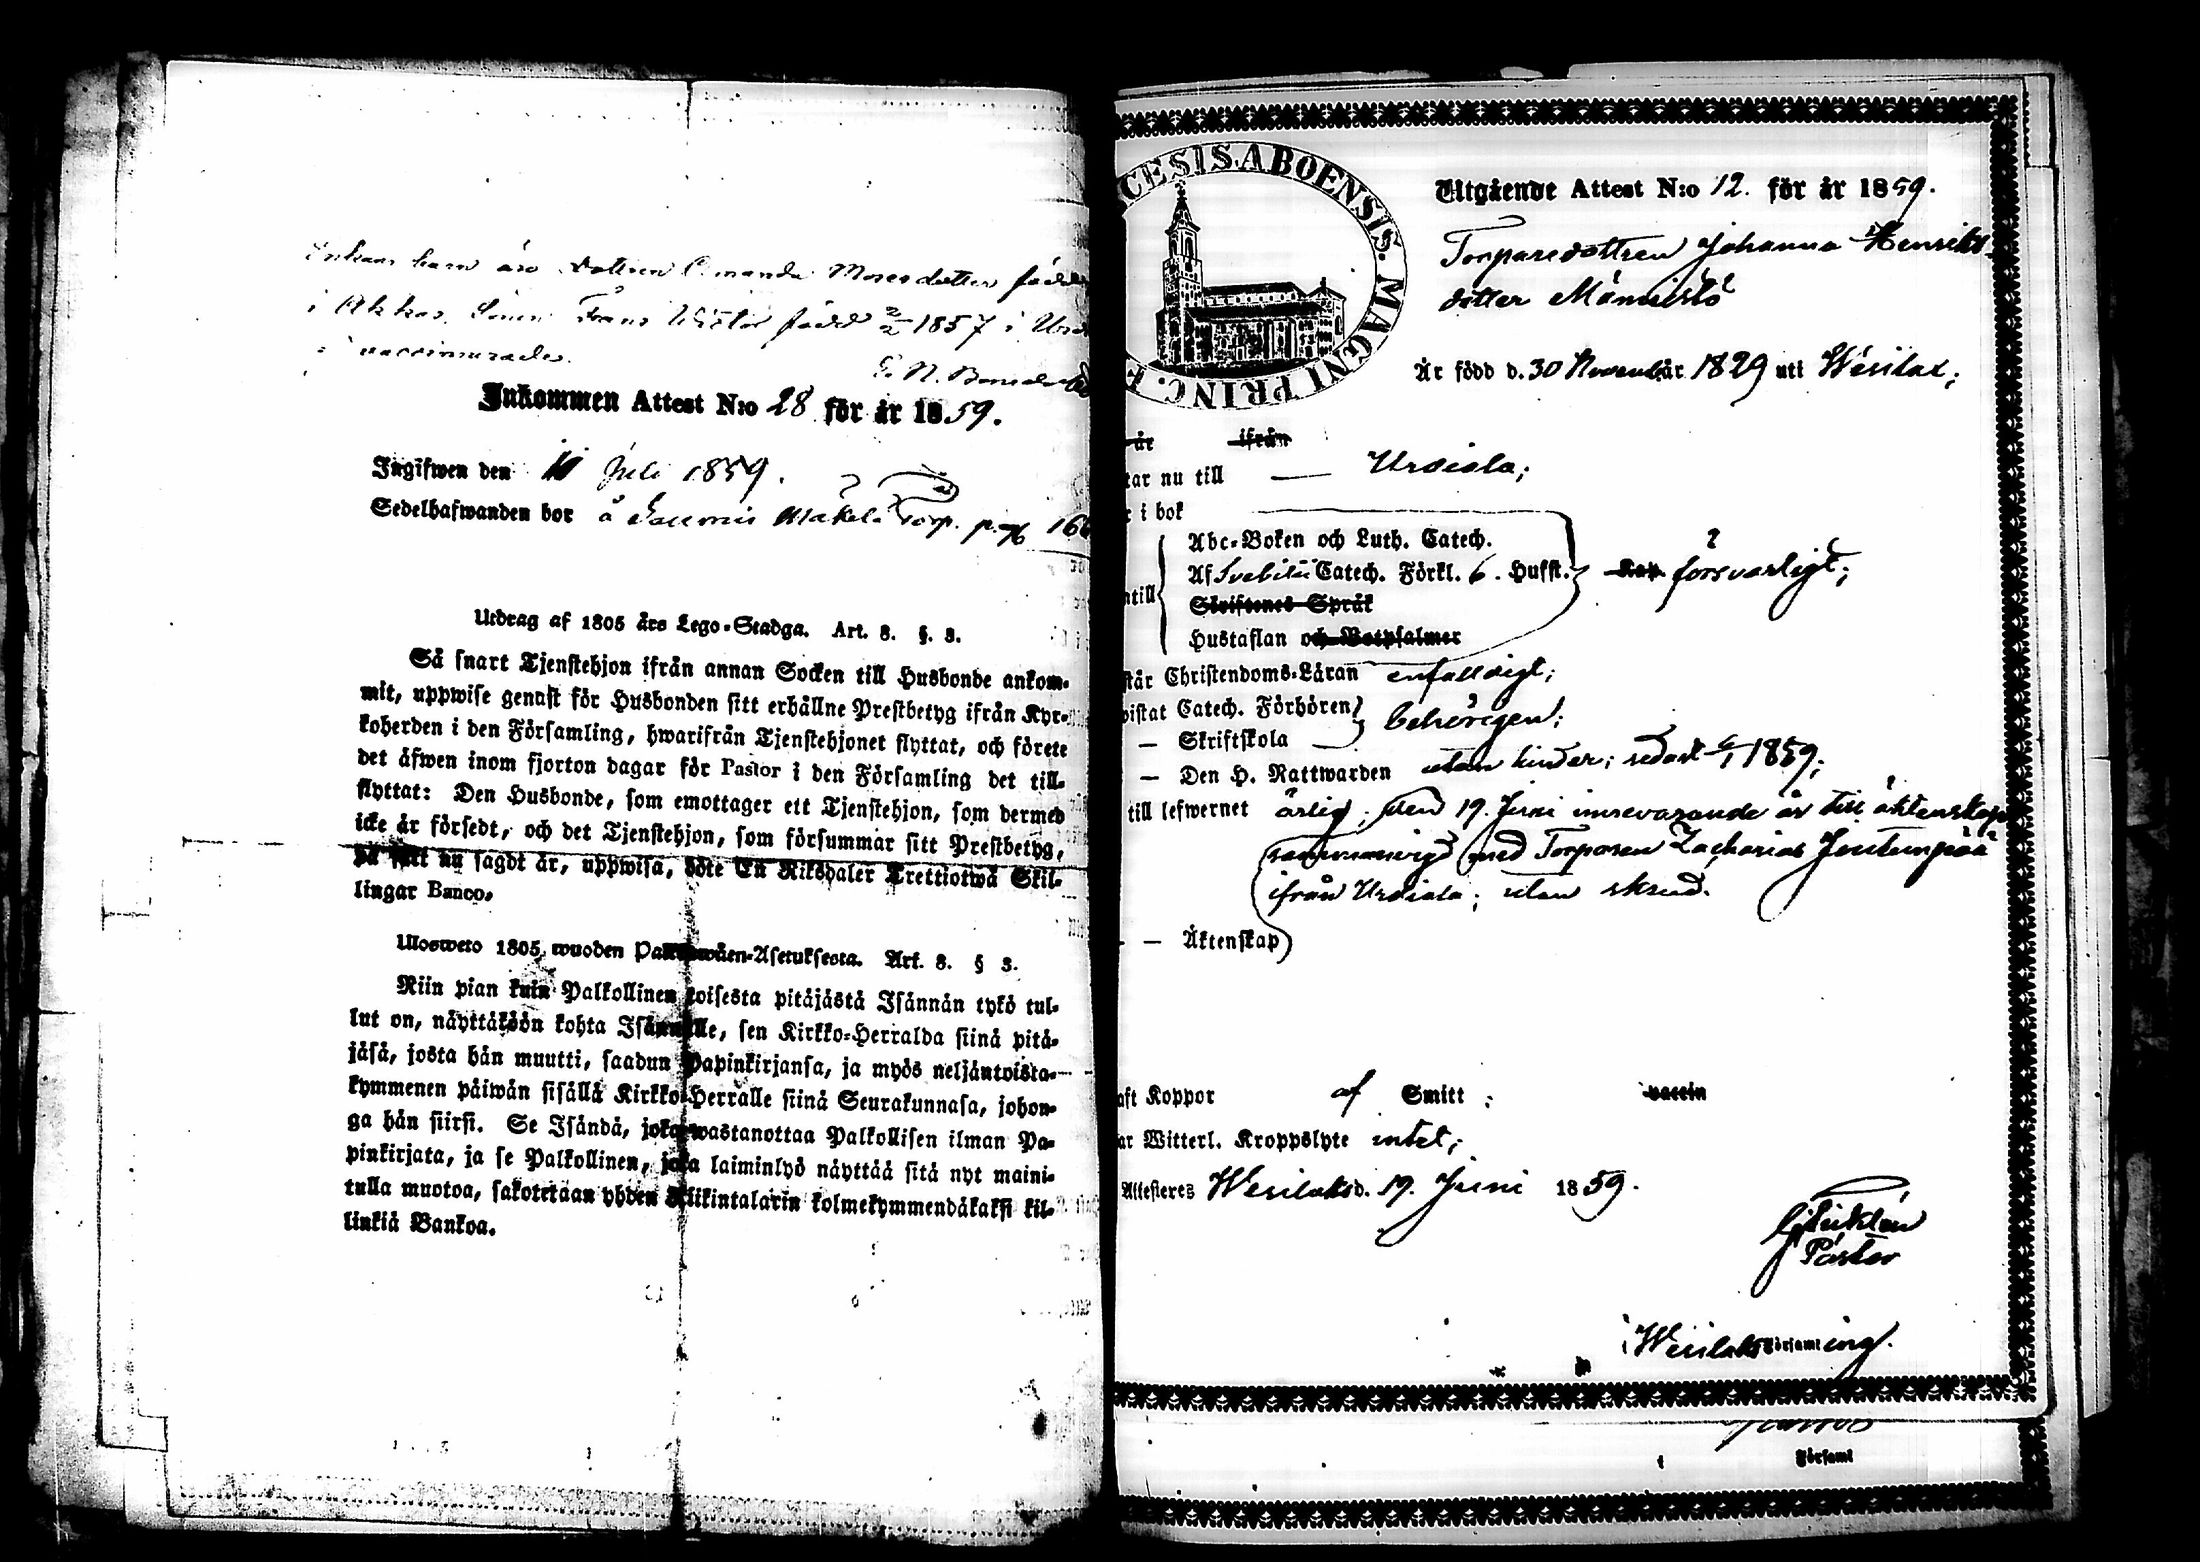 Enkans barn äro dottren Amanda Mosesdotter född
i Akkas, Sonen Frans Wictor född 2/2 1857 i Urd
vaccinerade.
E. N.
Inkommen Attest N:o 28 för år 1859.
Ingifwen den 10 Juli 1859.
Sedelhafwanden bor å Mäkelä Torp. pag 166
Utdrag af 1805 års Lego-Stadga. Art. 8. §. 3.
Så snart Tjenstehjon ifrån annan Socken till Husbonde ankom-
mit, uppwise genast för Husbonden sitt erhållne Prestbetyg ifrån Kyr-
koherden i den Församling, hwarifrån Tjenstehjonet flyttat, och förete
det äfwen inom fjorton dagar för Pastor i den Församling det till-
flyttat: Den Husbonde, som emottager ett Tjenstehjon, som dermed
icke är försedt, och det Tjenstehjon, som försummar sitt Prestbetyg,
på sätt nu sagdt är, uppwisa, böte En Riksdaler Trettiotwå Skil-
lingar Banco.
Ulosweto 1805 wuoden Palkkawäen-Asetuksesta. Art. 8. § 3.
Niin pian kuin Palkollinen toisesta pitäjästä Isännän tykö tul-
lut on, näyttäköön kohta Isännälle, sen Kirkko-Herralda siinä pitä-
jäsä, josta hän muutti, saadun Papinkirjansa, ja myös neljäntoista-
kymmenen päiwän sisällä Kirkko-Herralle siinä Seurakunnasa, johon-
ga hän siirsi. Se Isändä, joka wastanottaa Palkollisen ilman Pa-
pinkirjata, ja se Palkollinen, joka laiminlyö näyttää sitä nyt maini-
tulla muotoa, sakotetaan yhden Riikintalarin kolmekymmendäkaksi kil-
linkiä Bankoa.
CESIS. ABOENSIS. MAGNI PRINC. F
Utgående Attest N:o 12. för år 1859.
Torparedottren Johanna Henriks-
dotter Männistö
Är född d. 30 Novemb. år 1829 uti Wesilax;
är ifrån
tar nu till — Urdiala;
r i bok
Abc-Boken och Luth. Catech.
Af Svebilii Catech. Förkl. 6. Hufst. försvarligt;
ntill
Skriftenes Språk
Hustaflan och Botpsalmer
står Christendoms-Läran enfaldigt;
wistat Catech. Förhören
behörigen;
— Skriftskola
— Den H. Nattwarden utan hinder; sedast 6/1 1859;
till lefwernet ärlig; den 19. Juni innevarande år till äktenskap
sammanvigd med Torparen Zacharias Jontunpää
ifrån Urdiala; utan skrud.
— — Äktenskap
aft Koppor af Smitt; vaccin
ar Witterl. Kroppslyte intet;
Attesteres Wesilaks d. 19. Juni 1859.
Pastor
i Wesilaks Församling.
Församl